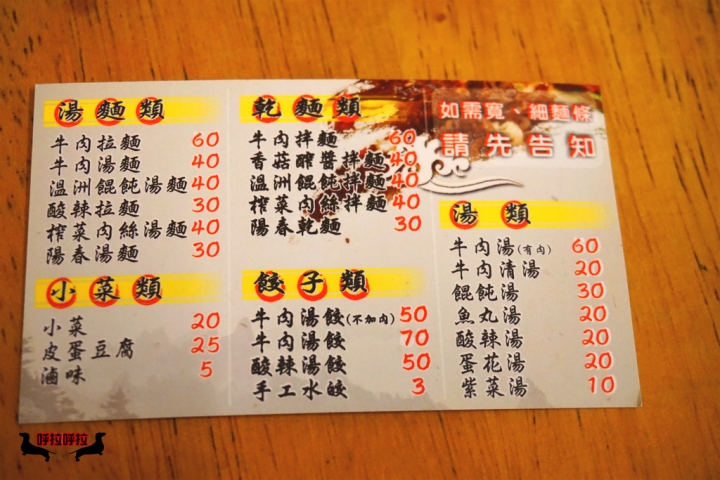 湯麵類
牛肉拉麵 60
牛肉湯麵 40
溫洲餛飩湯麵 40
酸辣拉麵 30
榨菜肉絲湯麵 40
陽春湯麵 30
小菜類
小菜 20
皮蛋豆腐 25
滷味 5
乾麵類
牛肉拌麵 60
香菇酢醬拌麵 40
溫洲餛飩拌麵 40
榨菜肉絲拌麵 40
陽春乾麵 30
餃子類
牛肉湯餃(不加肉) 50
牛肉湯餃 70
酸辣湯餃 50
手工水餃 3
如需寬、細麵條
請先告知
湯類
牛肉湯(有肉) 60
牛肉清湯 20
餛飩湯 30
魚丸湯 20
酸辣湯 20
蛋花湯 20
紫菜湯 10
呼拉呼拉